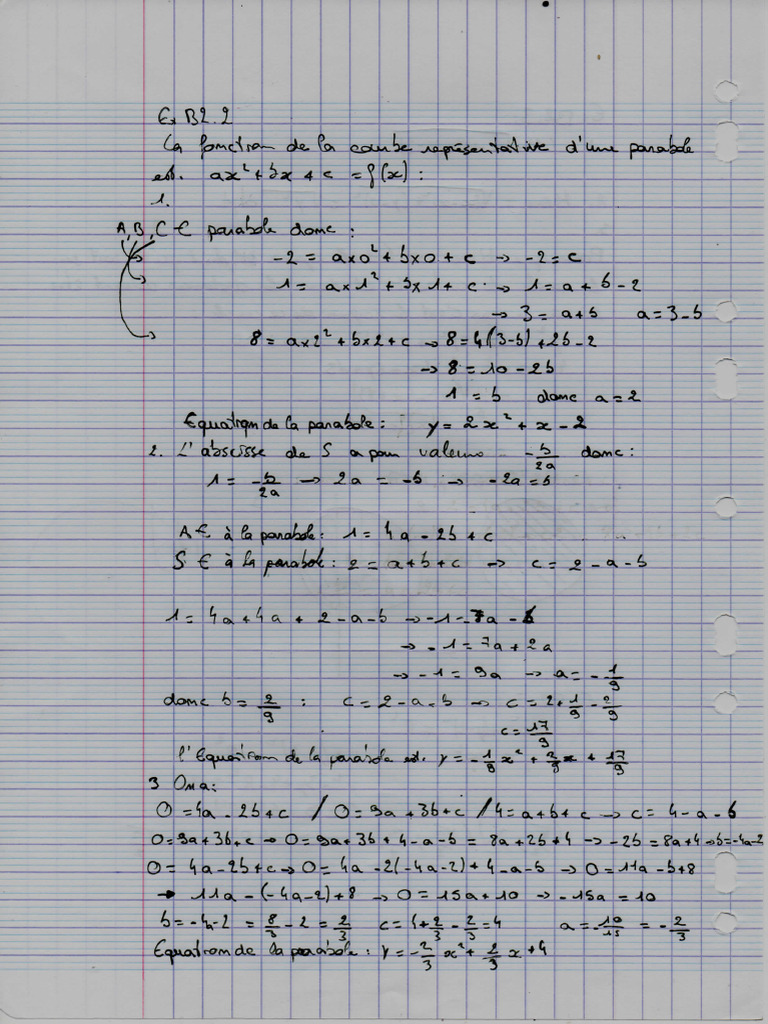 Ex B2.2
La fonction de la courbe représentative d'une parabole
est. ax² + bx + c = f(x) :
1.
A, B, C ∈ parabole donc :
-2 = a×0² + b×0 + c → -2 = c
1 = a×1² + b×1 + c → 1 = a + b - 2
→ 3 = a+b a = 3-b
8 = a×2² + b×2 + c → 8 = 4(3-b) + 2b - 2
→ 8 = 10 - 2b
1 = b donc a = 2
Equation de la parabole : y = 2x² + x - 2
2. L'abscisse de S a pour valeur -b/2a donc :
1 = -b/2a → 2a = -b → -2a = b
A ∈ à la parabole : 1 = 4a - 2b + c
S ∈ à la parabole : 2 = a+b+c → c = 2-a-b
1 = 4a + 4a + 2 - a - b → -1 = 7a - b
→ -1 = 7a + 2a
→ -1 = 9a → a = -1/9
donc b = 2/9 : c = 2-a-b → c = 2 + 1/9 - 2/9
c = 17/9
l'Equation de la parabole est. y = -1/9 x² + 2/9 x + 17/9
3 On a :
0 = 4a - 2b + c / 0 = 9a + 3b + c / 4 = a+b+c → c = 4-a-b
0 = 9a + 3b + c → 0 = 9a + 3b + 4-a-b = 8a + 2b + 4 → -2b = 8a+4 → b = -4a-2
0 = 4a - 2b + c → 0 = 4a - 2(-4a-2) + 4-a-b → 0 = 11a - b + 8
→ 11a - (-4a-2) + 8 → 0 = 15a + 10 → -15a = 10
b = -4a-2 = 8/3 - 2 = 2/3 c = 4 + 2/3 - 2/3 = 4 a = -10/15 = -2/3
Equation de la parabole : y = -2/3 x² + 2/3 x + 4